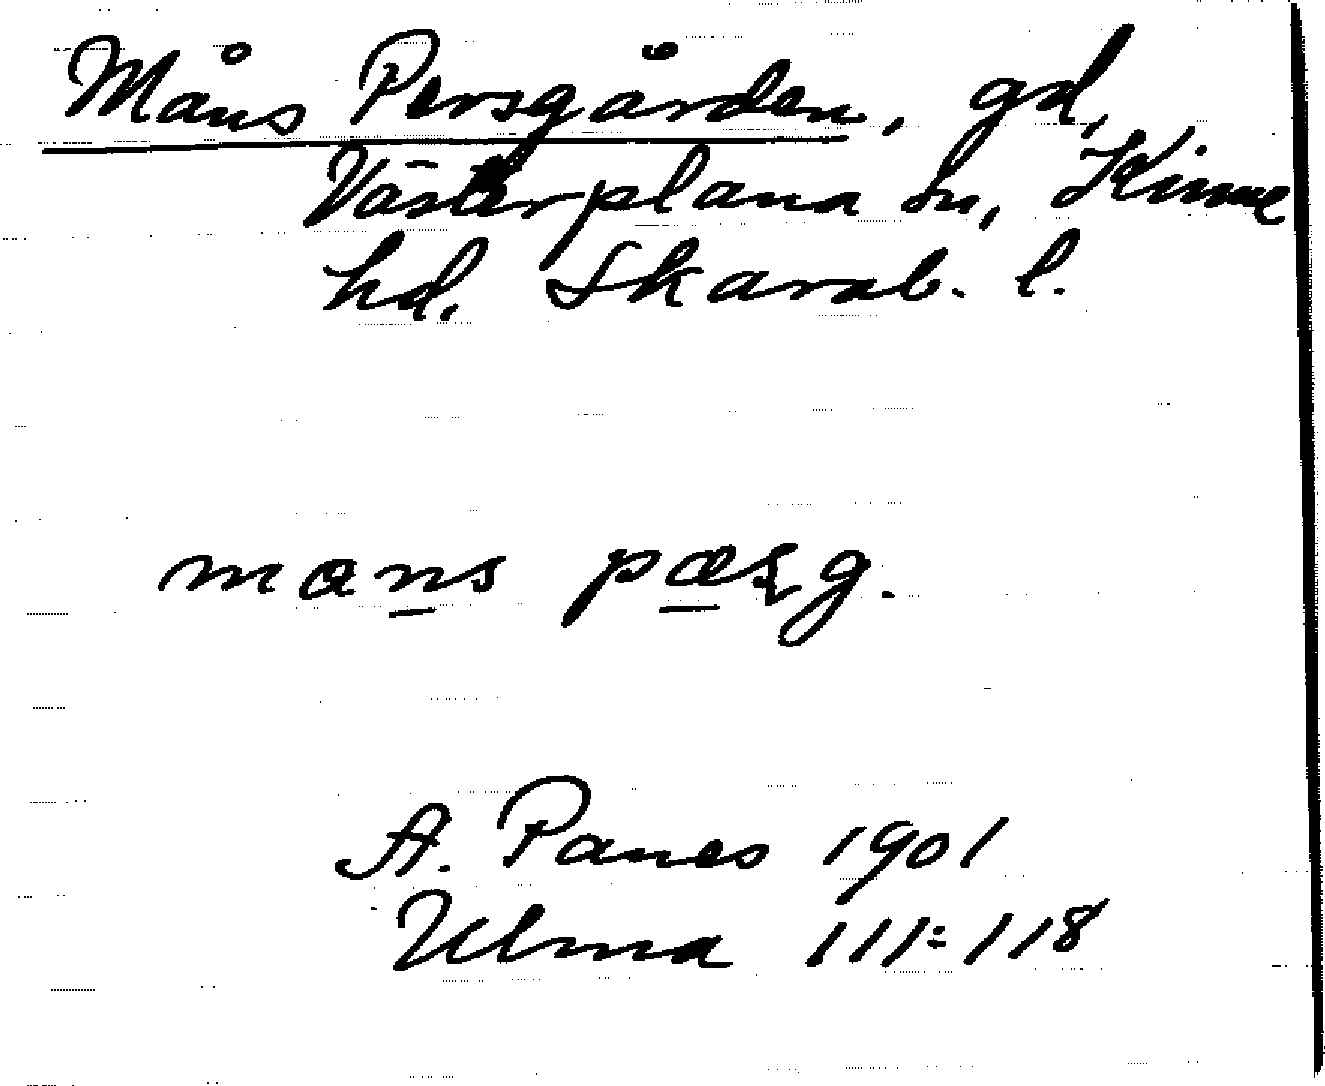 Måns Persgården, gd,
Västerplana sn, Kinne
hd. Skarab. l.
mans pæsg.
A. Panes 1901
Ulma 111:118